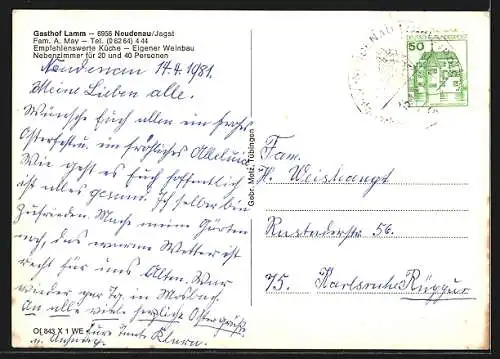 Gasthof Lamm – 6956 Neudenau/Jagst
Fam. A. May – Tel. (0 62 64) 4 44
Empfehlenswerte Küche – Eigener Weinbau
Nebenzimmer für 20 und 40 Personen
Neudenau 14.4.1981.
Meine Lieben alle.
Wünsche Euch allen ein frohes
Osterfest u. ein fröhliches Alleluia
Wie geht es Euch hoffentlich
ist alles gesund. Ich selber bin
zufrieden. Mach meine Gärten
noch, das warme Wetter ist
recht für uns Alten. War
wieder Tg. in Mosbach.
An alle viele herzliche Ostergrüße
Eure Tante Klara.
O(843 X 1 WE
Gebr. Metz, Tübingen
50
Fam.
H. Weishaupt
Rastadterstr 56.
75. Karlsruhe Rüppurr